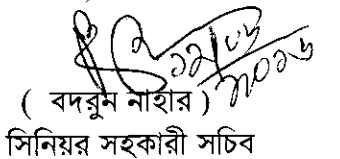 ( বদরুন নাহার )
সিনিয়র সহকারী সচিব